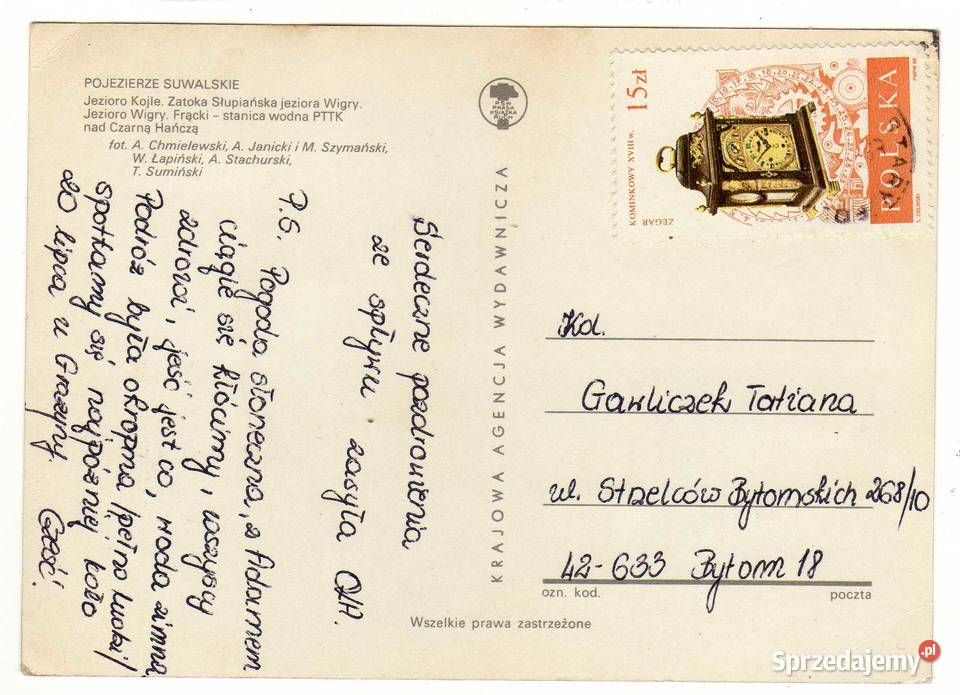 POJEZIERZE SUWALSKIE
Jezioro Kojle. Zatoka Słupiańska jeziora Wigry.
Jezioro Wigry. Frącki – stanica wodna PTTK
nad Czarną Hańczą
fot. A. Chmielewski, A. Janicki i M. Szymański,
W. Łapiński, A. Stachurski,
T. Sumiński
Serdeczne pozdrowienia
ze spływu zasyła
P.S. Pogoda słoneczna, z Adamem
ciągle się kłócimy, wszyscy
zdrowi, jeść jest co, woda zimna
Podróż była okropna /pełno ludzi/
spotkamy się najpóźniej koło
20 lipca u Grażyny.
Cześć!
PSW PRASA
KSIĄŻKA
RUCH
KRAJOWA AGENCJA WYDAWNICZA
15 zł
ZEGAR
KOMINKOWY XVIII w.
POLSKA
Kol.
Gawliczek Tatiana
ul. Strzelców Bytomskich 268/10
42-633 Bytom 18
ozn. kod.
poczta
Wszelkie prawa zastrzeżone
Sprzedajemy.pl